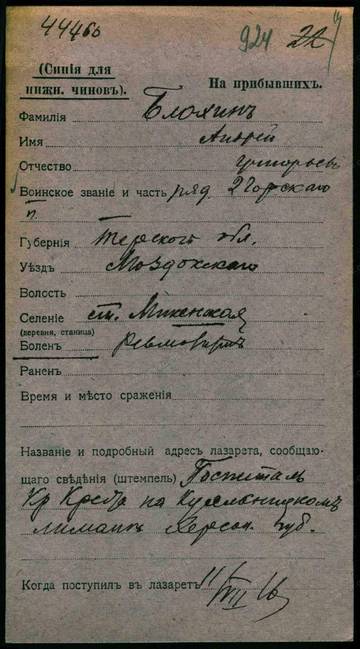 44460 924 22
(Синія для нижн. чиновъ).
На прибывшихъ.
Фамилія Блохинъ
Имя Андрей
Отчество Григорьев
Воинское званіе и часть ряд 2 Горскаго
п.
Губернія Терской обл.
Уѣздъ Моздокскаго
Волость
Селеніе ст. Мекенская
(деревня, станица)
Боленъ Ревматизмъ
Раненъ
Время и мѣсто сраженія
Названіе и подробный адресъ лазарета, сообщаю-
щаго свѣдѣнія (штемпель) Госпиталь
Кр Креста на Куяльницкомъ
лиманѣ Херсон. губ.
Когда поступилъ въ лазаретъ 11/VII 16